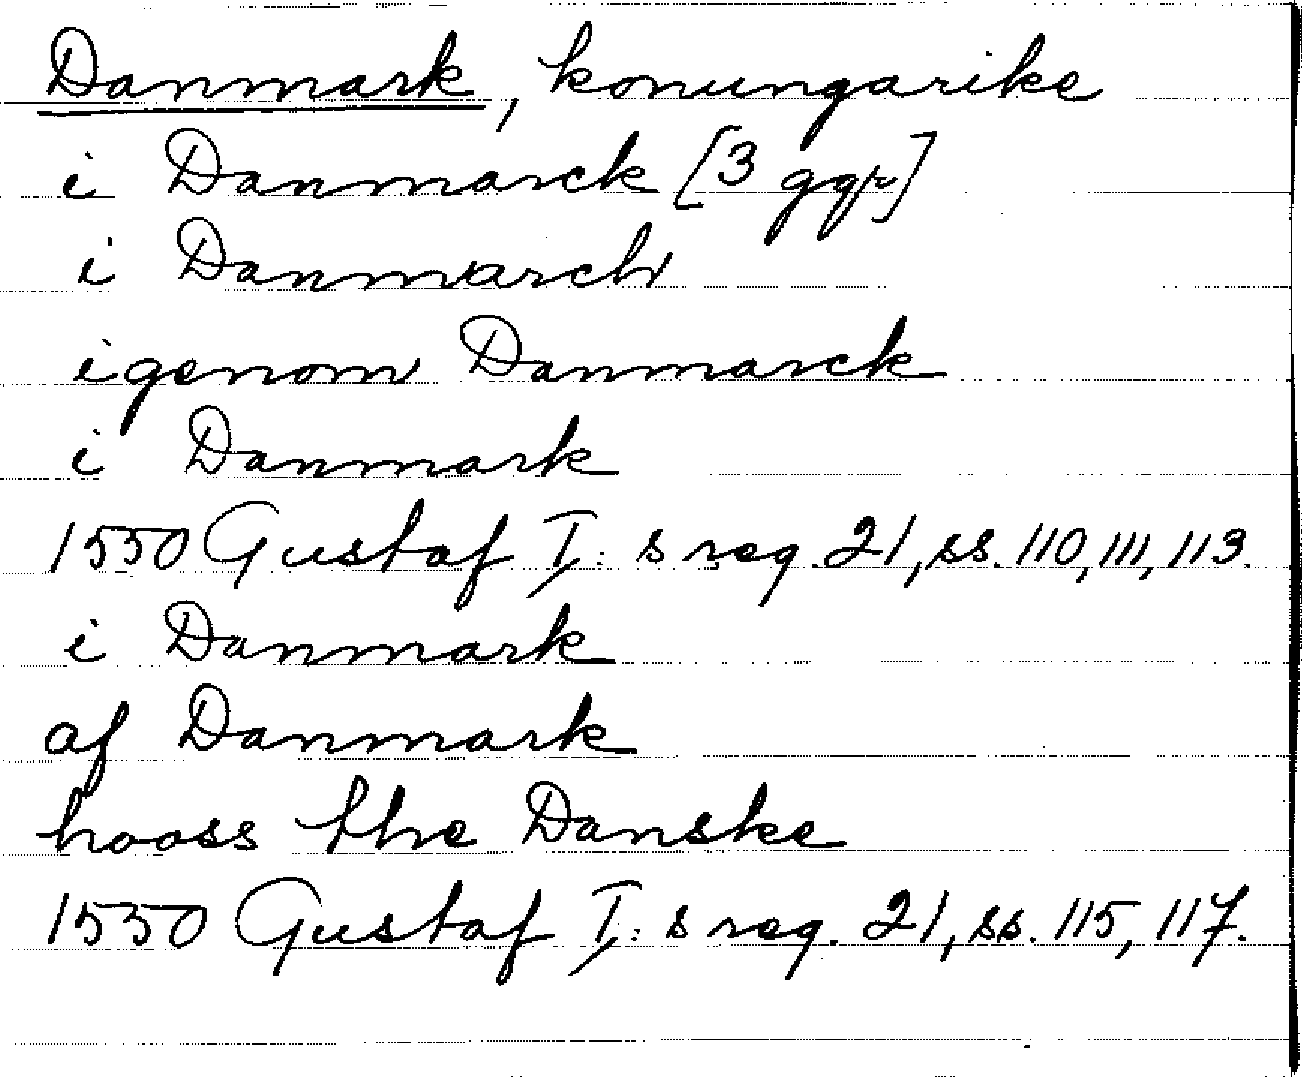 Danmark, konungarike
i Danmarck [3 ggr]
i Danmarch
igenom Danmarck
i Danmark
1550 Gustaf I: s reg. 21, ss. 110, 111, 113.
i Danmark
af Danmark
hooss the Danske
1550 Gustaf I: s reg. 21, ss. 115, 117.